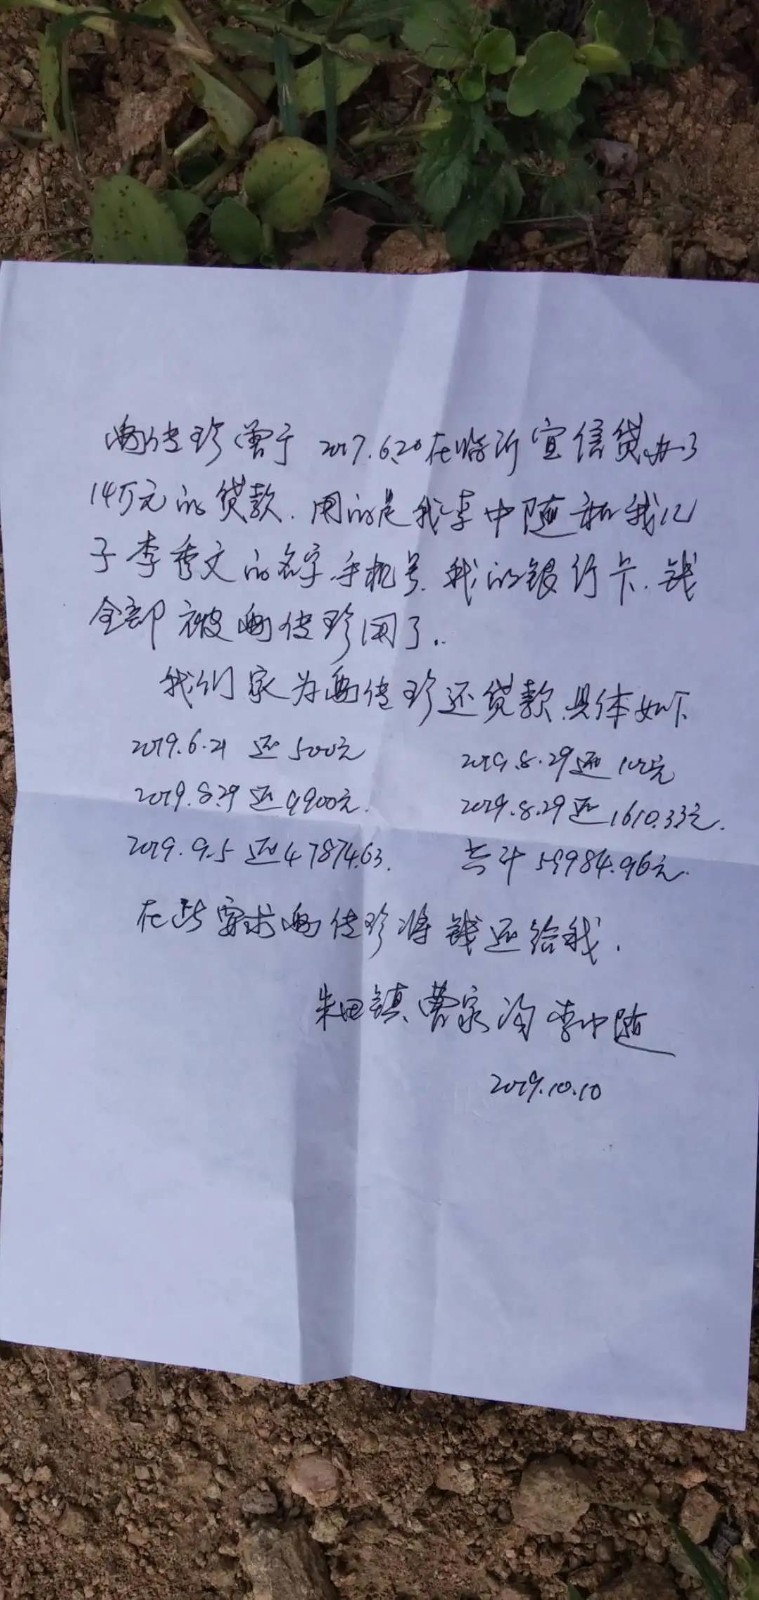 传珍曾于2017.6.20在临沂宜信贷办了
14万元的贷款.用的是我李中随和我儿
子李秀文的名字.手机号.我的银行卡.钱
全部被传珍用了..
我们家为传珍还贷款.具体如下
2019.6.21 还500元 2019.8.29还100元
2019.8.29还9900元. 2019.8.29还1610.33元.
2019.9.5还47874.63. 共计59984.96元.
在此要求传珍将钱还给我.
朱田镇曹家沟李中随
2019.10.10